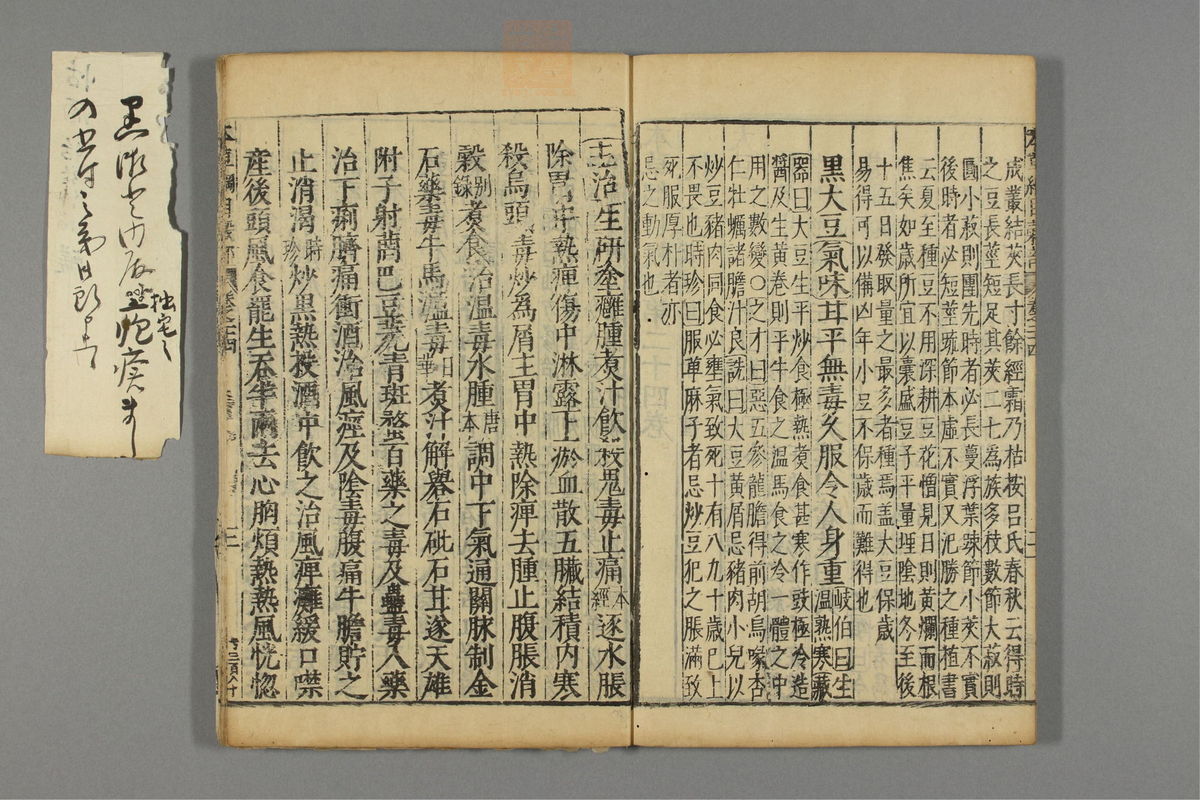 成叢結莢長寸餘經霜乃枯按呂氏春秋云得時
之豆長莖短足其莢二七為族多枝數節大菽則
圓小菽則團先時者必長蔓浮葉疎節小莢不實
後時者必短莖疎節本虛不實又氾勝之種植書
云夏至種豆不用深耕豆花憎見日則黃爛而根
焦矣如歲所宜以囊盛豆子平量埋陰地冬至後
十五日發取量之最多者種焉盖大豆保歲
易得可以備凶年小豆不保歲而難得也
黑大豆氣味甘平無毒久服令人身重岐伯曰生溫熟寒藏
器曰大豆生平炒食極熱煮食甚寒作豉極冷造
醬及生黃卷則平牛食之溫馬食之冷一體之中
用之數變○之才曰惡五參龍膽得前胡烏喙杏
仁牡蠣諸膽汁良詵曰大豆黃屑忌猪肉小兒以
炒豆豬肉同食必壅氣致死十有八九十歲已上
不畏也時珍曰服萆麻子者忌炒豆犯之脹滿致
死服厚朴者亦
忌之動氣也
主治生研塗癰腫煮汁飲殺鬼毒止痛本經逐水脹
除胃中熱痺傷中淋露下瘀血散五臟結積內寒
殺烏頭毒炒為屑主胃中熱除痺去腫止腹脹消
穀別錄煮食治溫毒水腫唐本調中下氣通關脉制金
石藥毒牛馬溫毒日華煮汁解礜石砒石甘遂天雄
附子射菵巴豆芫青斑蝥百藥之毒及蠱毒入藥
治下痢臍痛衝酒治風痙及陰毒腹痛牛膽貯之
止消渴時珍炒黑熱投酒中飲之治風痺癱緩口噤
產後頭風食罷生吞半兩去心胸煩熱熱風恍惚